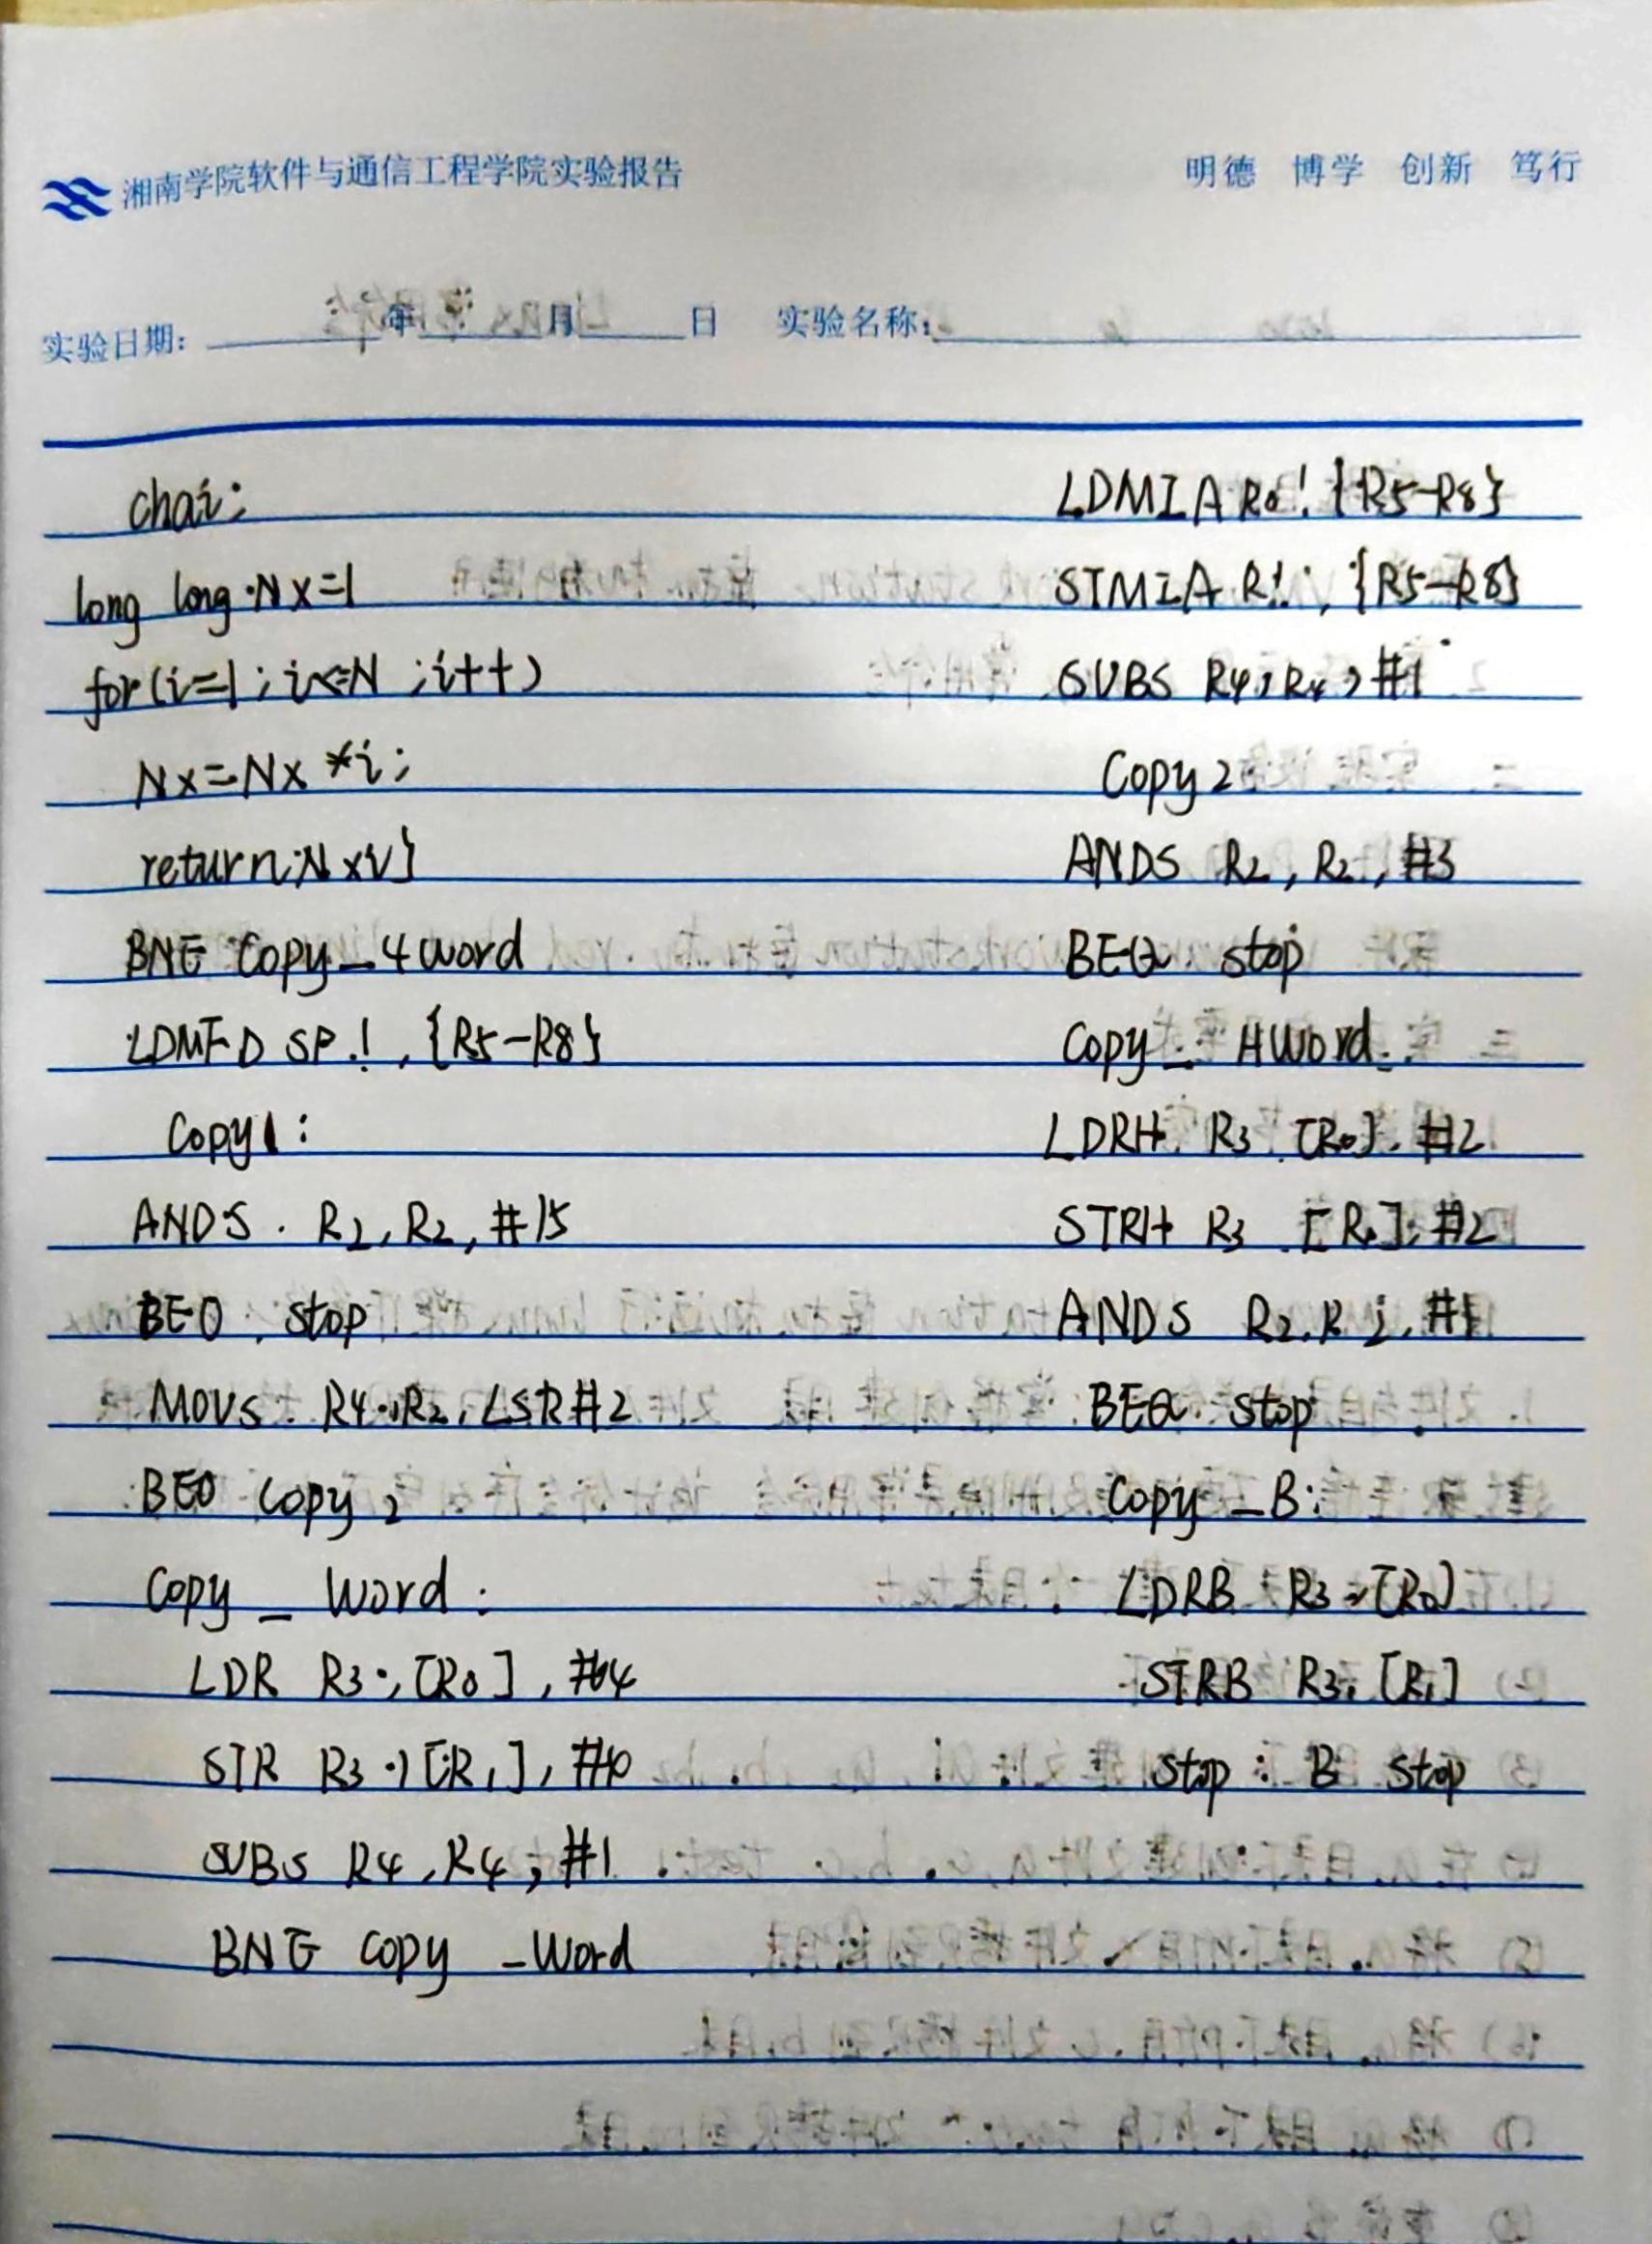 湘南学院软件与通信工程学院实验报告
明德 博学 创新 笃行
实验日期: 年 月 日 实验名称:
chai:
long long Nx=1
for(i=1;i<=N;i++)
Nx=Nx*i;
return Nxi}
BNE Copy_4word
LDMFD SP!,{R5-R8}
Copy1:
ANDS R2,R2,#15
BEQ stop
MOVS R4,R2,LSR#2
BEQ Copy2
Copy_Word:
LDR R3,[R0],#4
STR R3,[R1],#
SUBS R4,R4,#1
BNE copy_Word
LDMIA R0!{R5-R8}
STMIA R!,{R5-R8}
SUBS R4,R4,#1
Copy2
ANDS R2,R2,#3
BEQ stop
Copy_HWord:
LDRH R3,[R0],#2
STRH R3,[R1],#2
ANDS R2,R2,#1
BEQ stop
Copy_B:
LDRB R3,[R0]
STRB R3,[R1]
stop: B stop